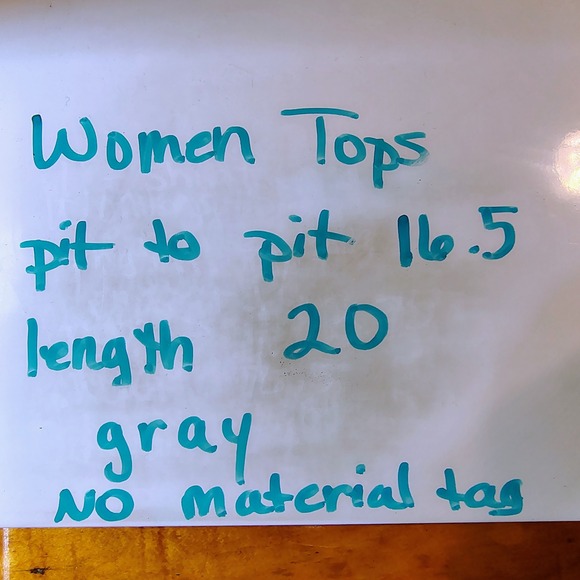 Women Tops
pit to pit 16.5
length 20
gray
NO material tag